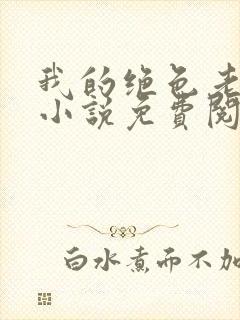 我的绝色老
小説免費閱
白水煮而不加